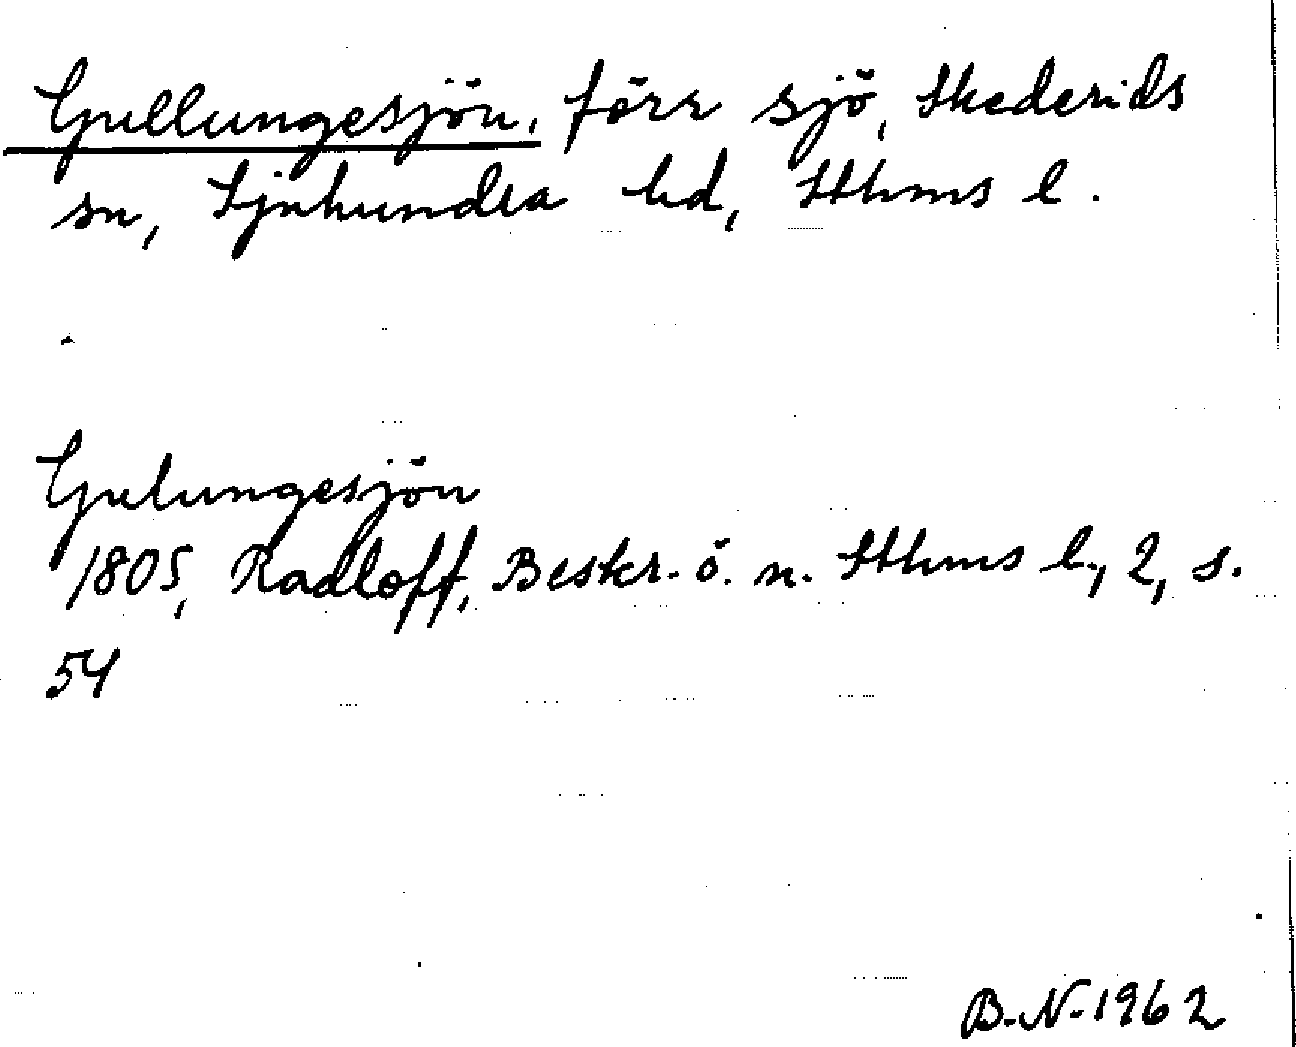 Gullungesjön, förr sjö, Skederids
sn, Sjuhundra hd, Sthms l.
Gulungesjön
1805, Radloff, Beskr. ö. n. Sthms l., 2, s.
54
B.N. 1962